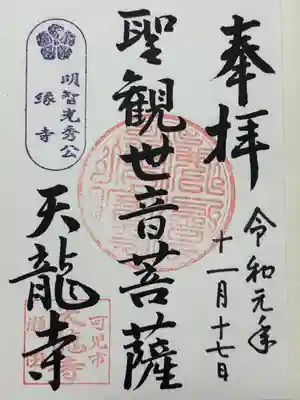 奉拝
令和元年
十一月十七日
聖観世音菩薩
明智光秀公
縁寺
天龍寺
可児市